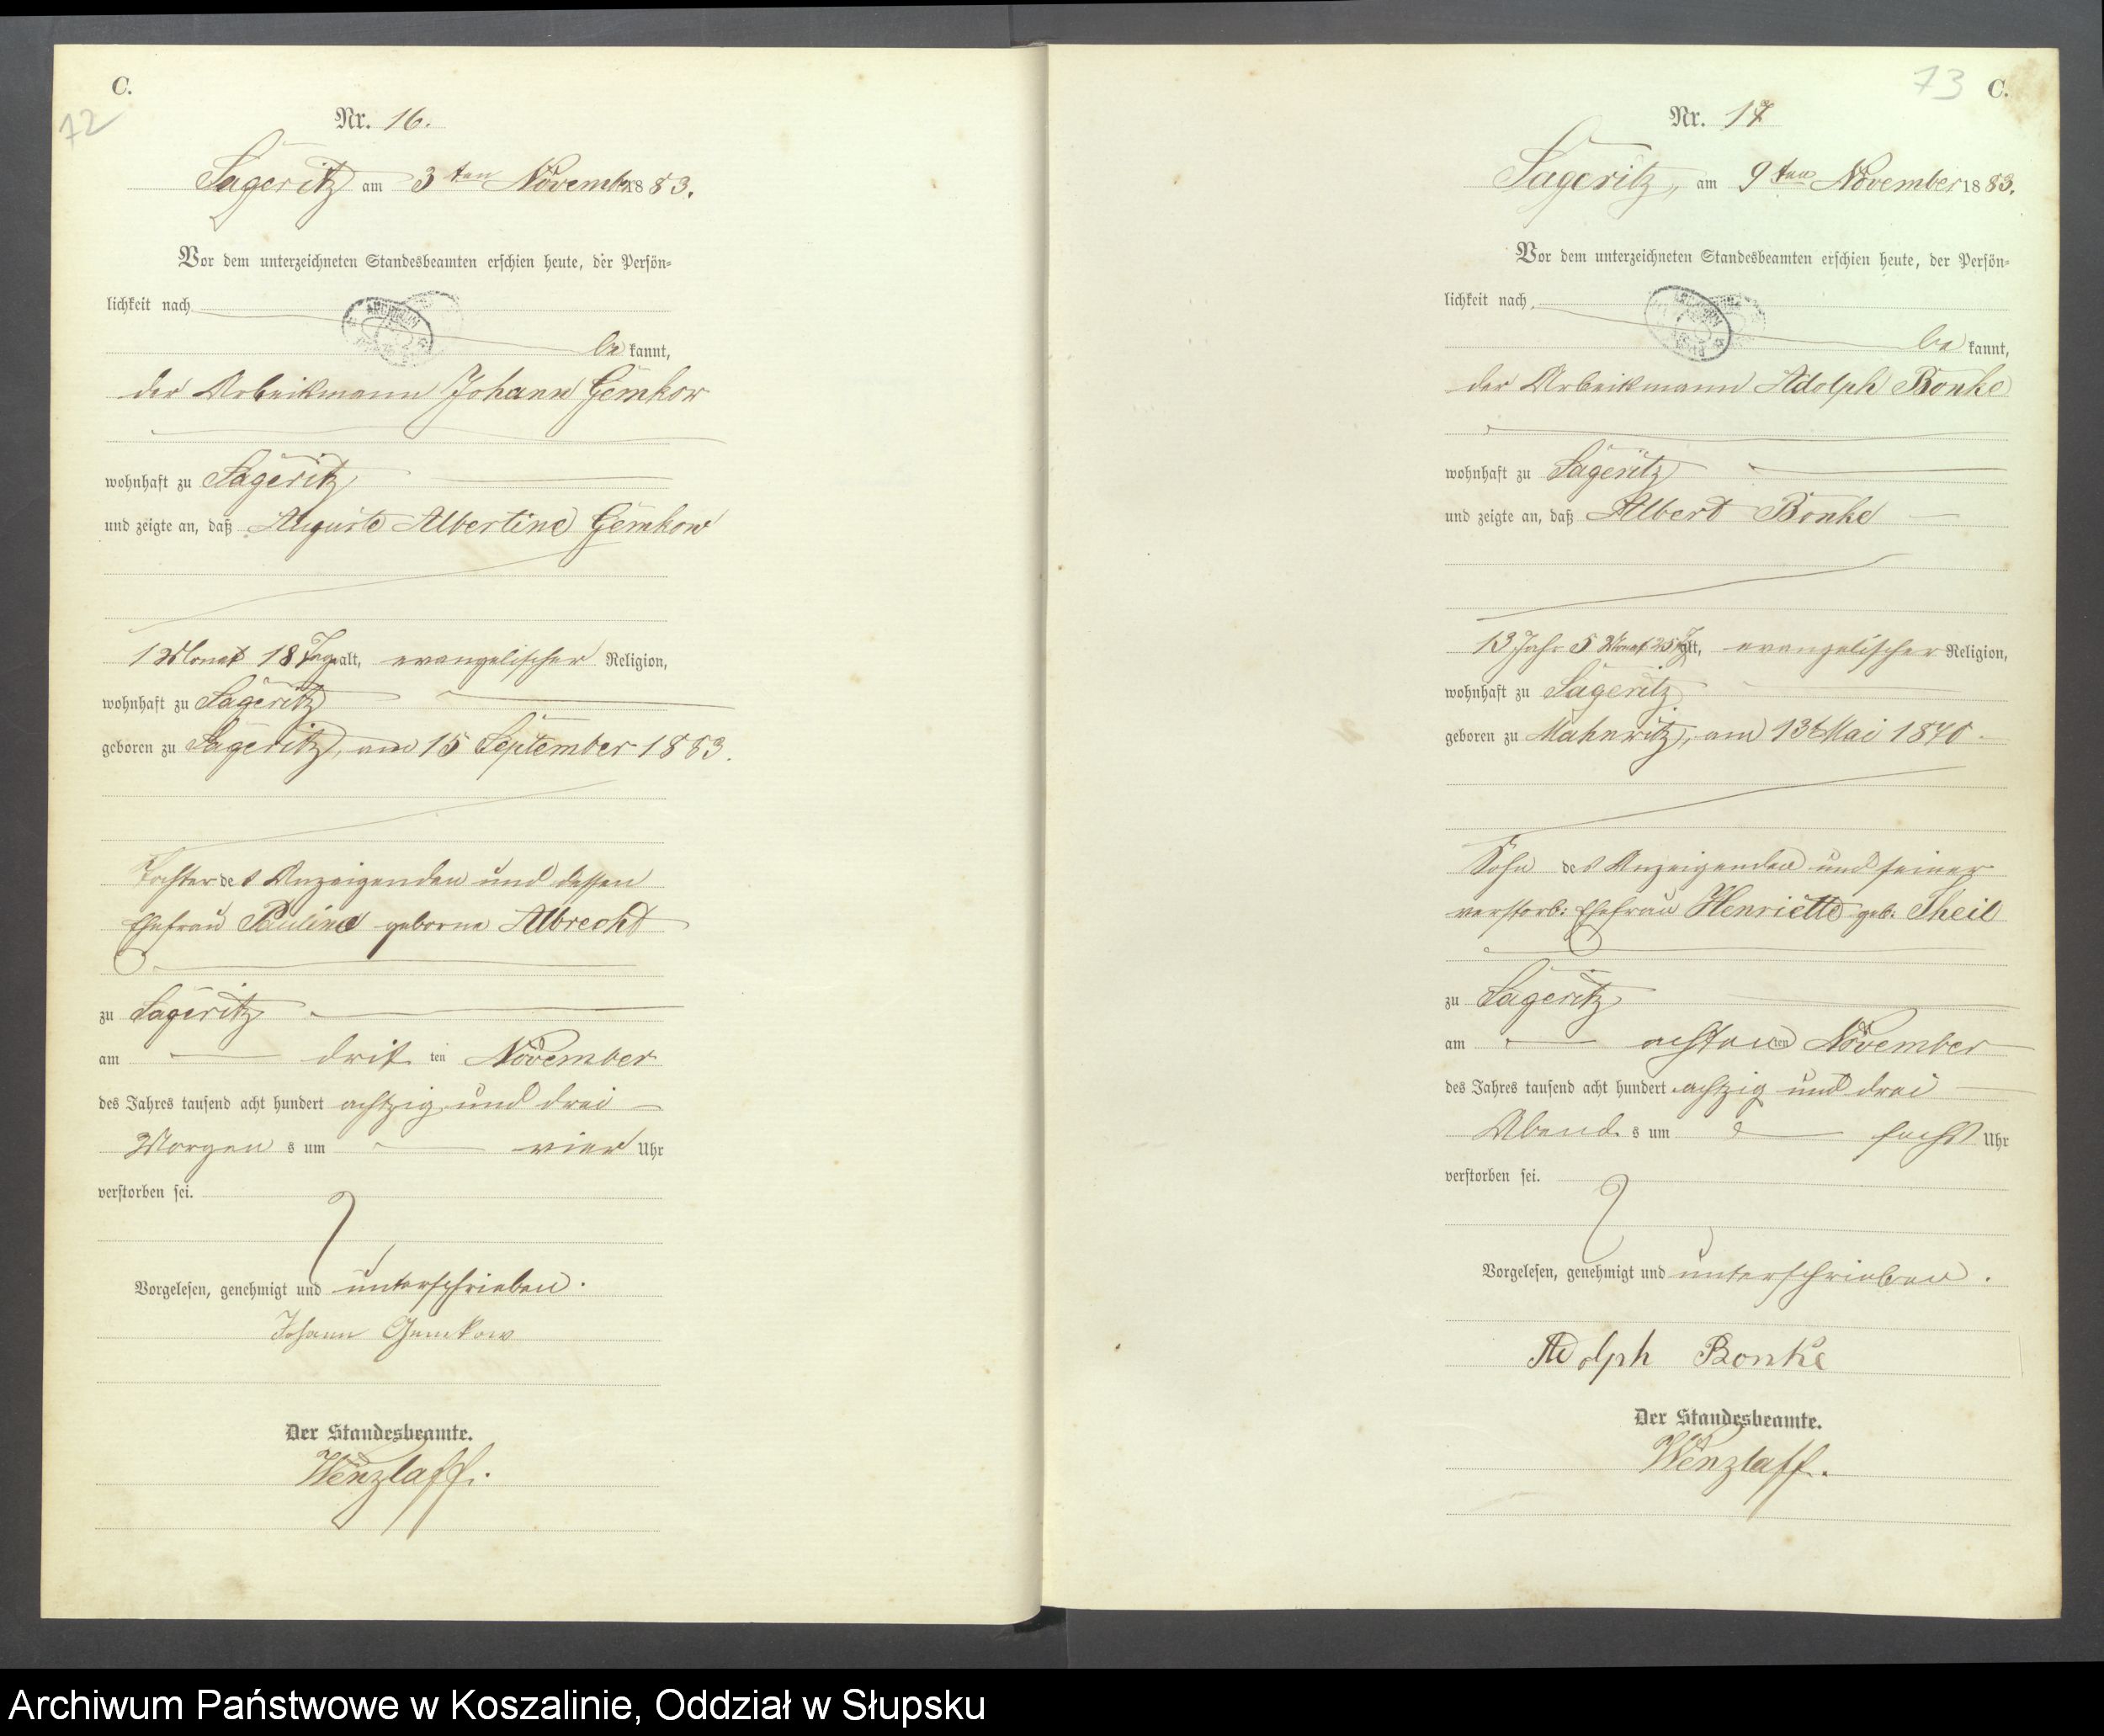 C.
72
Nr. 16.
Sageritz am 3ten November 1883.
Vor dem unterzeichneten Standesbeamten erschien heute, der Persön-
lichkeit nach
bekannt,
der Arbeitsmann Johann Gemkow
wohnhaft zu Sageritz
und zeigte an, daß Auguste Albertine Gemkow
1 Monat 18 Tage alt, evangelischer Religion,
wohnhaft zu Sageritz
geboren zu Sageritz, am 15 September 1883.
Tochter des Anzeigenden und dessen
Ehefrau Pauline geborne Albrecht
zu Sageritz
am dritten November
des Jahres tausend acht hundert achtzig und drei
Morgens um vier Uhr
verstorben sei.
Vorgelesen, genehmigt und unterschrieben.
Johann Gemkow
Der Standesbeamte.
Wenzlaff.
73
C.
Nr. 17
Sageritz, am 9ten November 1883.
Vor dem unterzeichneten Standesbeamten erschien heute, der Persön-
lichkeit nach
bekannt,
der Arbeitsmann Adolph Bonke
wohnhaft zu Sageritz
und zeigte an, daß Albert Bonke
13 Jahr 5 Monat 25 Tg alt, evangelischer Religion,
wohnhaft zu Sageritz
geboren zu Mahnwitz, am 13t Mai 1870
Sohn des Anzeigenden und seiner
verstorb: Ehefrau Henriette geb: Theil
zu Sageritz
am achten November
des Jahres tausend acht hundert achtzig und drei
Abends um sechs Uhr
verstorben sei.
Vorgelesen, genehmigt und unterschrieben.
Adolph Bonke
Der Standesbeamte.
Wenzlaff.
Archiwum Państwowe w Koszalinie, Oddział w Słupsku